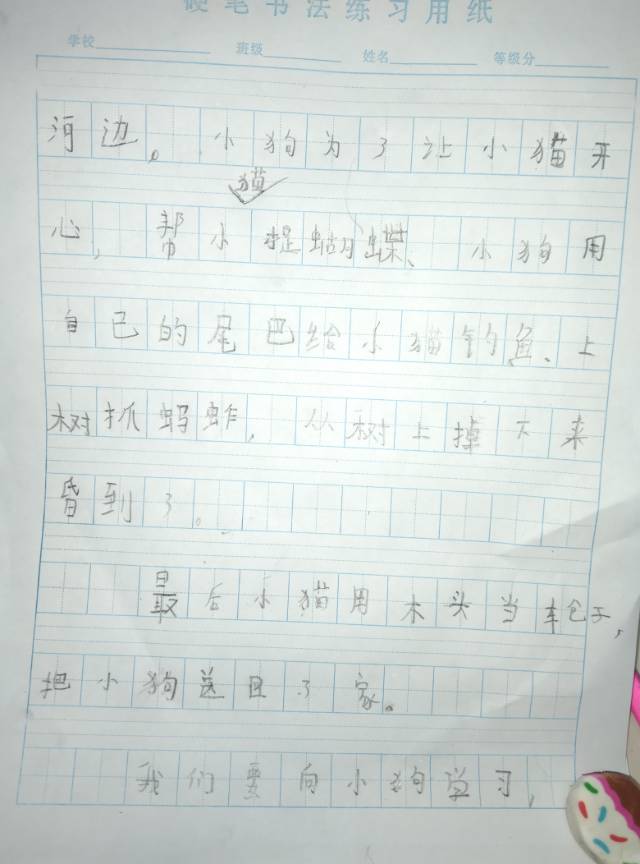 硬笔书法练习用纸
学校 班级 姓名 等级分
河边。小狗为了让小猫开
猫
心，帮小捉蝴蝶、小狗用
自己的尾巴给小猫钓鱼、上
树抓蚂蚱，从树上掉下来
昏到了。
最后小猫用木头当轮子，
把小狗送回了家。
我们要向小狗学习，